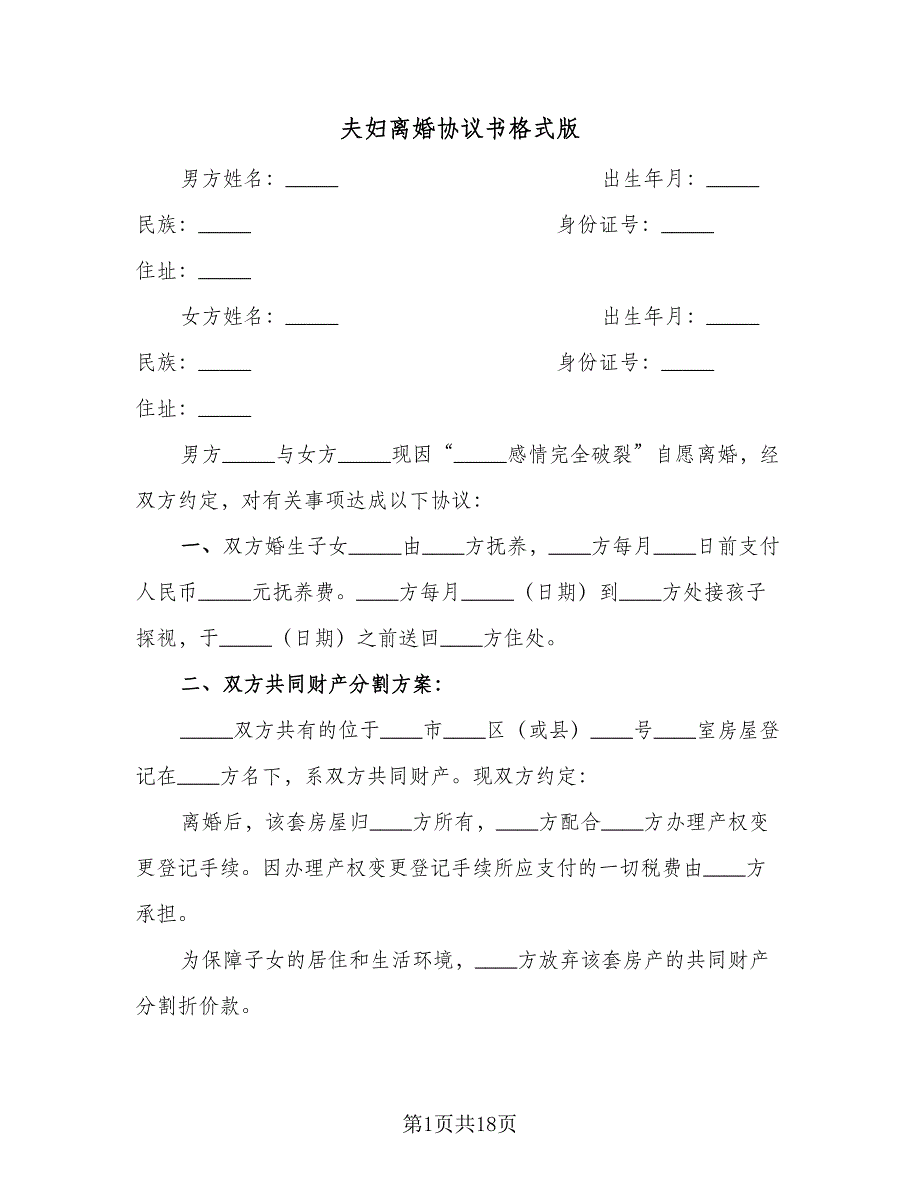 夫妇离婚协议书格式版
男方姓名：_____ 出生年月：_____
民族：_____ 身份证号：_____
住址：_____
女方姓名：_____ 出生年月：_____
民族：_____ 身份证号：_____
住址：_____
男方_____与女方_____现因“_____感情完全破裂”自愿离婚，经
双方约定，对有关事项达成以下协议：
一、双方婚生子女_____由____方抚养，____方每月____日前支付
人民币_____元抚养费。____方每月_____（日期）到____方处接孩子
探视，于_____（日期）之前送回____方住处。
二、双方共同财产分割方案：
_____双方共有的位于____市____区（或县）____号____室房屋登
记在____方名下，系双方共同财产。现双方约定：
离婚后，该套房屋归____方所有，____方配合____方办理产权变
更登记手续。因办理产权变更登记手续所应支付的一切税费由____方
承担。
为保障子女的居住和生活环境，____方放弃该套房产的共同财产
分割折价款。
第1页共18页